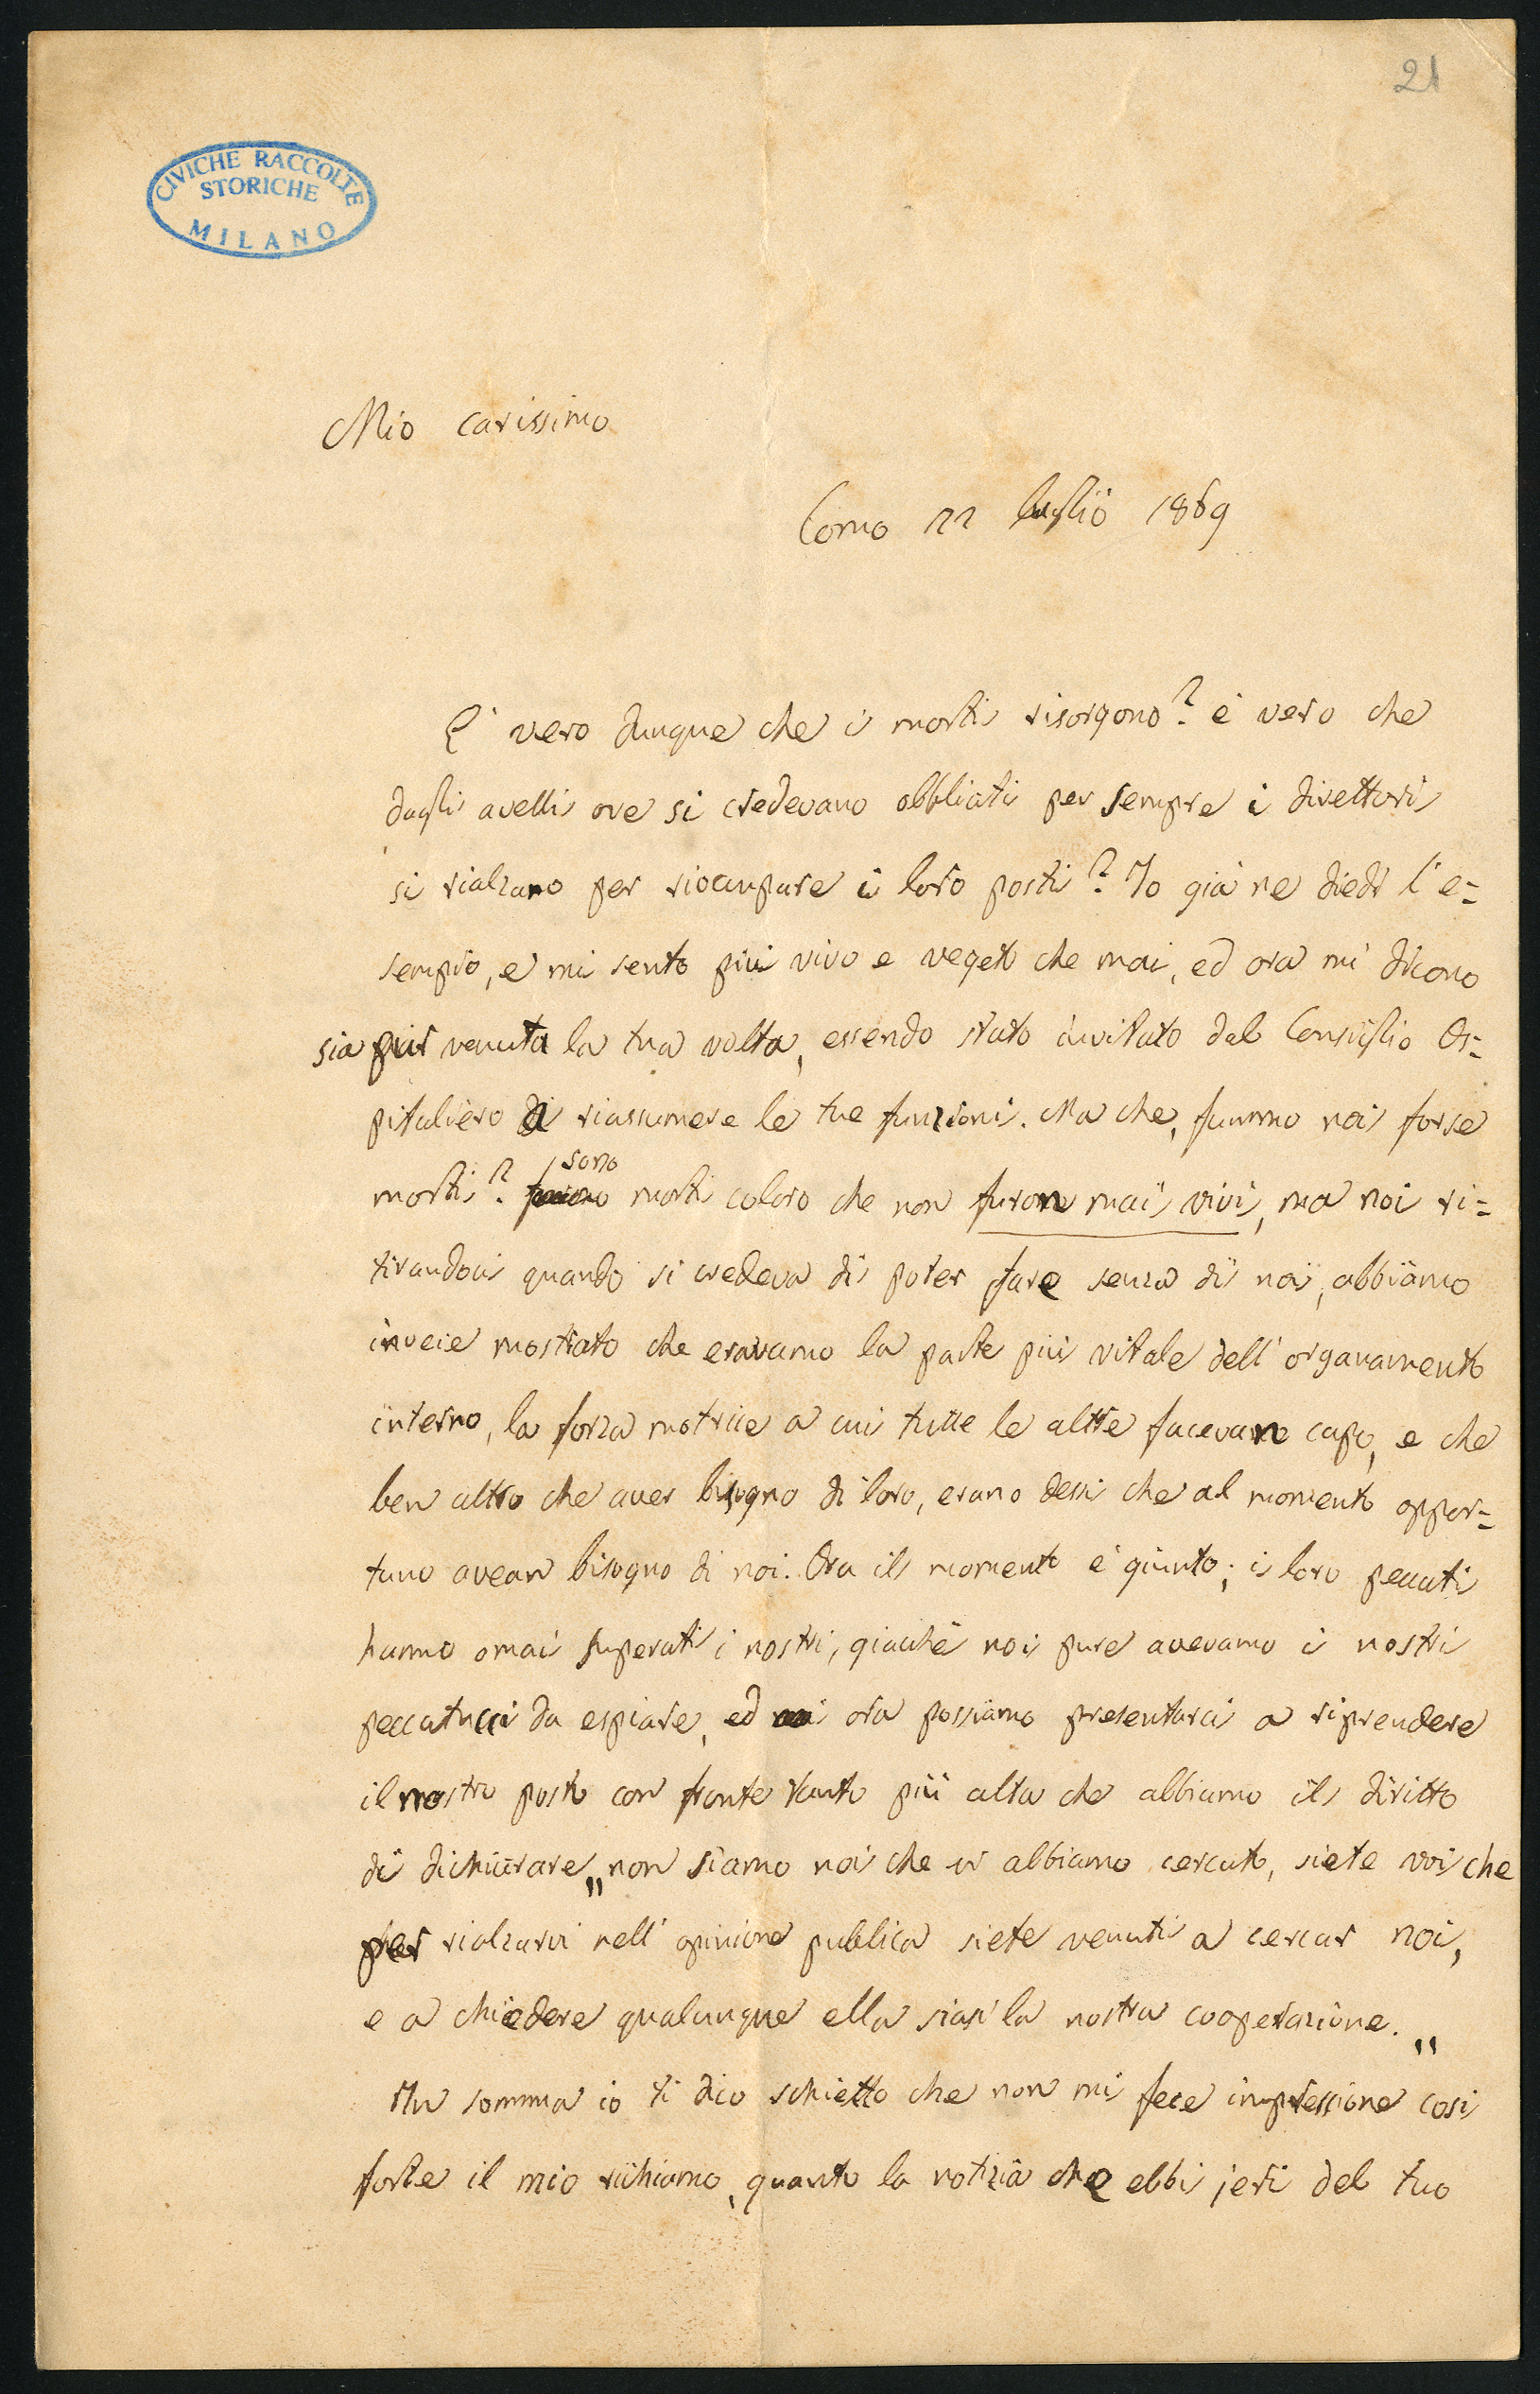 21
CIVICHE RACCOLTE
STORICHE
MILANO
Mio carissimo
Como 22 luglio 1869
E' vero dunque che i morti risorgono? è vero che
dagli avelli ove si credevano obbliati per sempre i direttori
si rialzano per rioccupare i loro posti? Io già ne diedi l'e=
sempio, e mi sento più vivo e vegeto che mai, ed ora mi dicono
sia pur venuta la tua volta, essendo stato invitato dal Consiglio Os=
pitaliero a riassumere le tue funzioni. Ma che, fummo noi forse
morti? sono morti coloro che non furono mai vivi, ma noi ri=
tirandoci quando si credeva di poter fare senza di noi, abbiamo
invece mostrato che eravamo la parte più vitale dell'organamento
interno, la forza motrice a cui tutte le altre facevano capo, e che
ben altro che aver bisogno di loro, erano dessi che al momento oppor=
tuno avean bisogno di noi. Ora il momento è giunto; i loro peccati
hanno omai superati i nostri, giacchè noi pure avevamo i nostri
peccatucci da espiare, ed ora possiamo presentarci a riprendere
il nostro posto con fronte tanto più alta che abbiamo il diritto
di dichiarare „non siamo noi che vi abbiamo cercato, siete voi che
per rialzarvi nell'opinione pubblica siete venuti a cercar noi,
e a chiedere qualunque ella siasi la nostra cooperazione. „
In somma io ti dico schietto che non mi fece impressione così
forte il mio richiamo, quanto la notizia che ebbi jeri del tuo